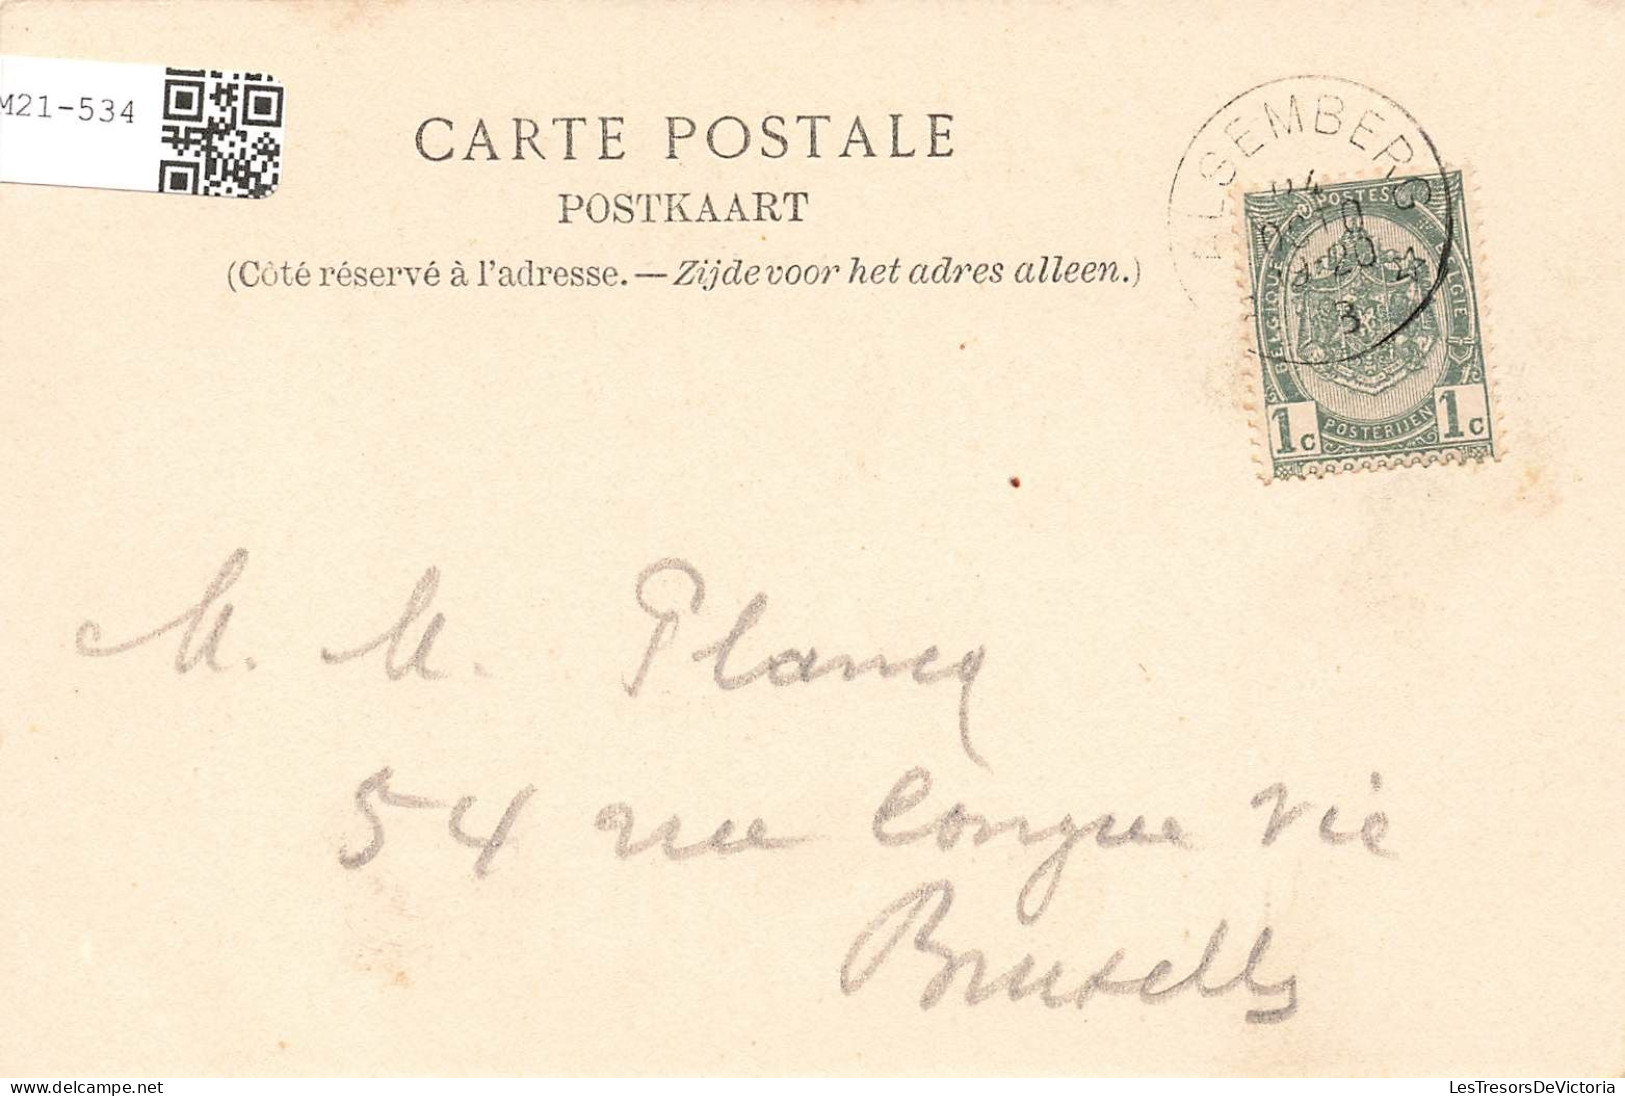 M21-534
CARTE POSTALE
POSTKAART
(Côté réservé à l'adresse. — Zijde voor het adres alleen.)
ALSEMBERG
OCTO
8-20
3
POSTES
BELGIQUE
BELGIE
POSTERIJEN
1c
1c
M. M. Plancq
54 rue Longue vie
Bruxelles
LesTresorsDeVictoria
delcampe.net